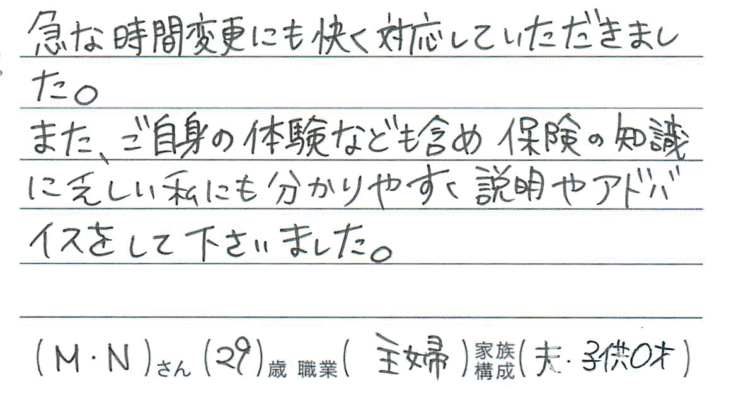 急な時間変更にも快く対応していただきまし
た。
また、ご自身の体験なども含め 保険の知識
に乏しい私にも分かりやすく説明やアドバ
イスをして下さいました。
(M・N)さん (29)歳 職業( 主婦 )家族構成(夫・子供0才)